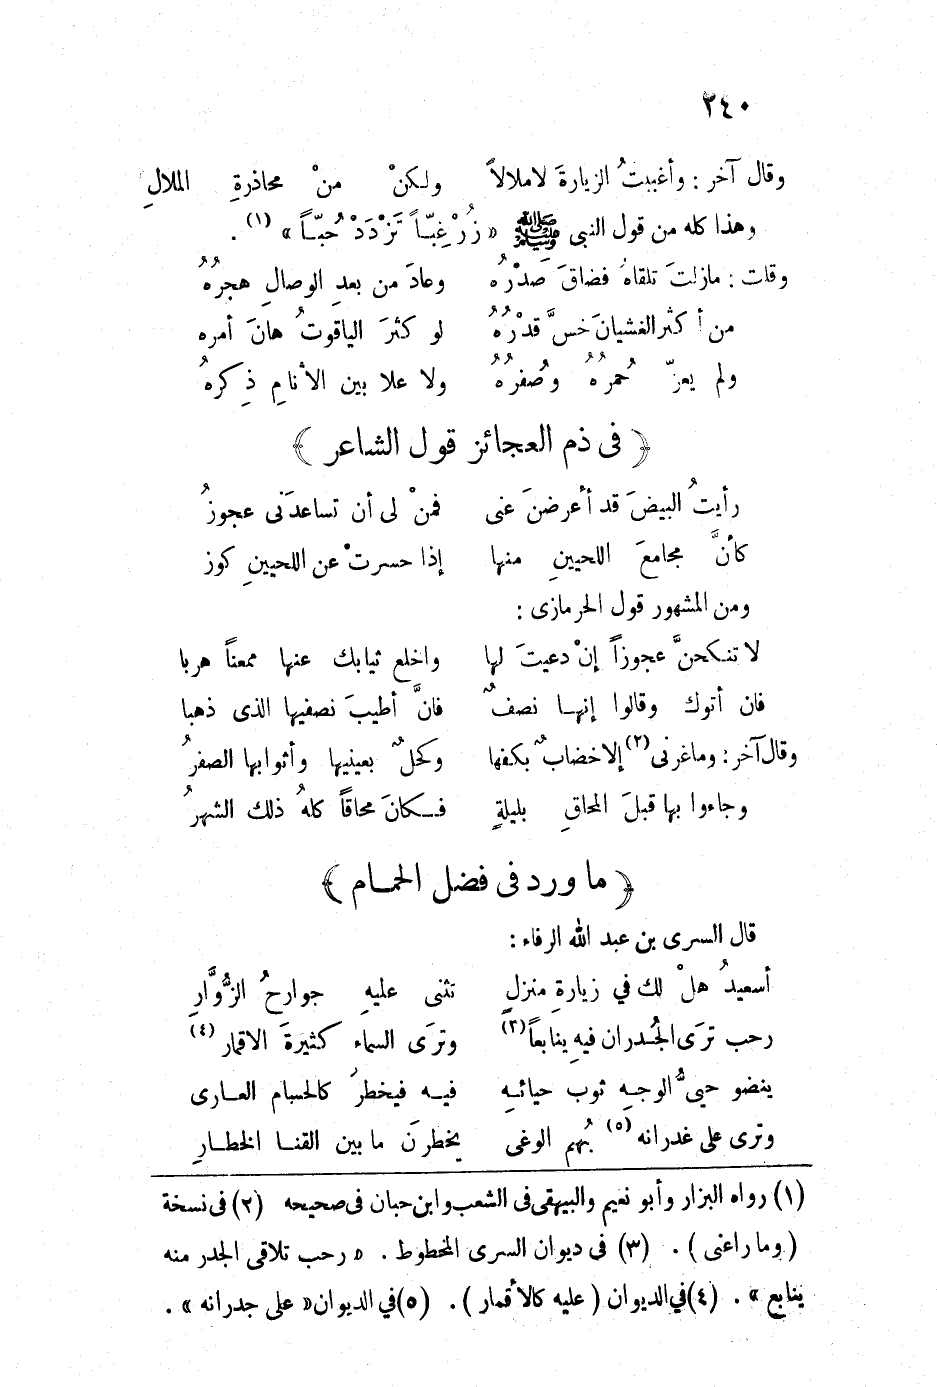 ٢٤٠
وقال آخر : وأغببتُ الزيارةَ لا ملالاً ولكنْ منْ محاذرةِ الملالِ
وهذا كله من قول النبى ﷺ « زُرْ غِبّاً تَزْدَدْ حُبّاً » (١) .
وقلت : مازلتَ تلقاهُ فضاقَ صَدْرُه وعادَ من بعدِ الوصالِ هجرُهُ
من أكثر الغشيانَ خسَّ قدْرُهُ لو كثرَ الياقوتُ هانَ أمره
ولم يعزّ حُمرُهُ وصُفرُهُ ولا علا بين الأنامِ ذِكرهُ
﴿ فى ذم العجائز قول الشاعر ﴾
رأيتُ البيضَ قد أعرضنَ عنى فمنْ لى أن تساعدَنى عجوزُ
كأنَّ مجامعَ اللحيينِ منها إذا حسرتْ عن اللحيينِ كوز
ومن المشهور قول الحرمازى :
لا تنكحنَّ عجوزاً إنْ دعيتَ لها واخلع ثيابك عنها ممعناً هربا
فان أتوك وقالوا إنها نصفٌ فانَّ أطيبَ نصفيها الذى ذهبا
وقال آخر : وما غرنى (٢) إلا خضابٌ بكفها وكحلٌ بعينيها وأثوابها الصفرُ
وجاءوا بها قبلَ المحاقِ بليلةٍ فكانَ محاقاً كلهُ ذلك الشهرُ
﴿ ما ورد فى فضل الحمام ﴾
قال السرى بن عبد الله الرفاء :
أسعيدُ هلْ لك في زيارةِ منزلٍ تثنى عليهِ جوارحُ الزُّوَّارِ
رحب ترَى الجُدران فيهِ ينابعاً (٣) وترَى السماء كثيرةَ الاقمار (٤)
ينضو حيىُّ الوجهِ ثوب حيائهِ فيه فيخطرُ كالحسام العارى
وترى على غدرانه (٥) بُهم الوغى يخطرنَ ما بين القنا الخطارِ
(١) رواه البزار وأبو نعيم والبيهقى فى الشعب وابن حبان فى صحيحه (٢) فى نسخة
( وما راعنى ) . (٣) فى ديوان السرى المخطوط . « رحب تلاقى الجدر منه
ينابع » . (٤) في الديوان ( عليه كالأقمار ) . (٥) في الديوان « على جدرانه » .